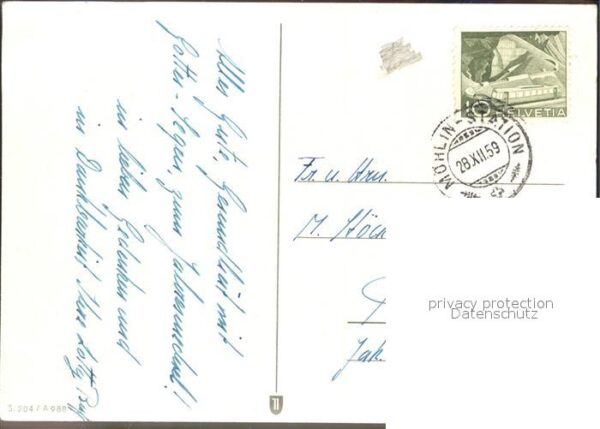 Alles Gute, Gesundheit und
Gottes-Segen, zum Jahreswechsel!
in lieben Gedenken und
in Dankbarkeit
Fr. u. Hrn.
M. Stöck
Jak.
10
HELVETIA
MÖHLIN-STATION
28.XII.59
privacy protection
Datenschutz
S. 204 / A 988